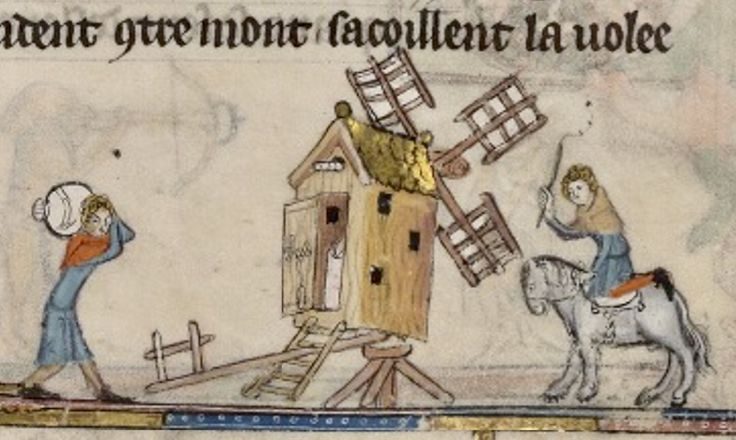 ndent ꝯtre mont sacoillent la uolee